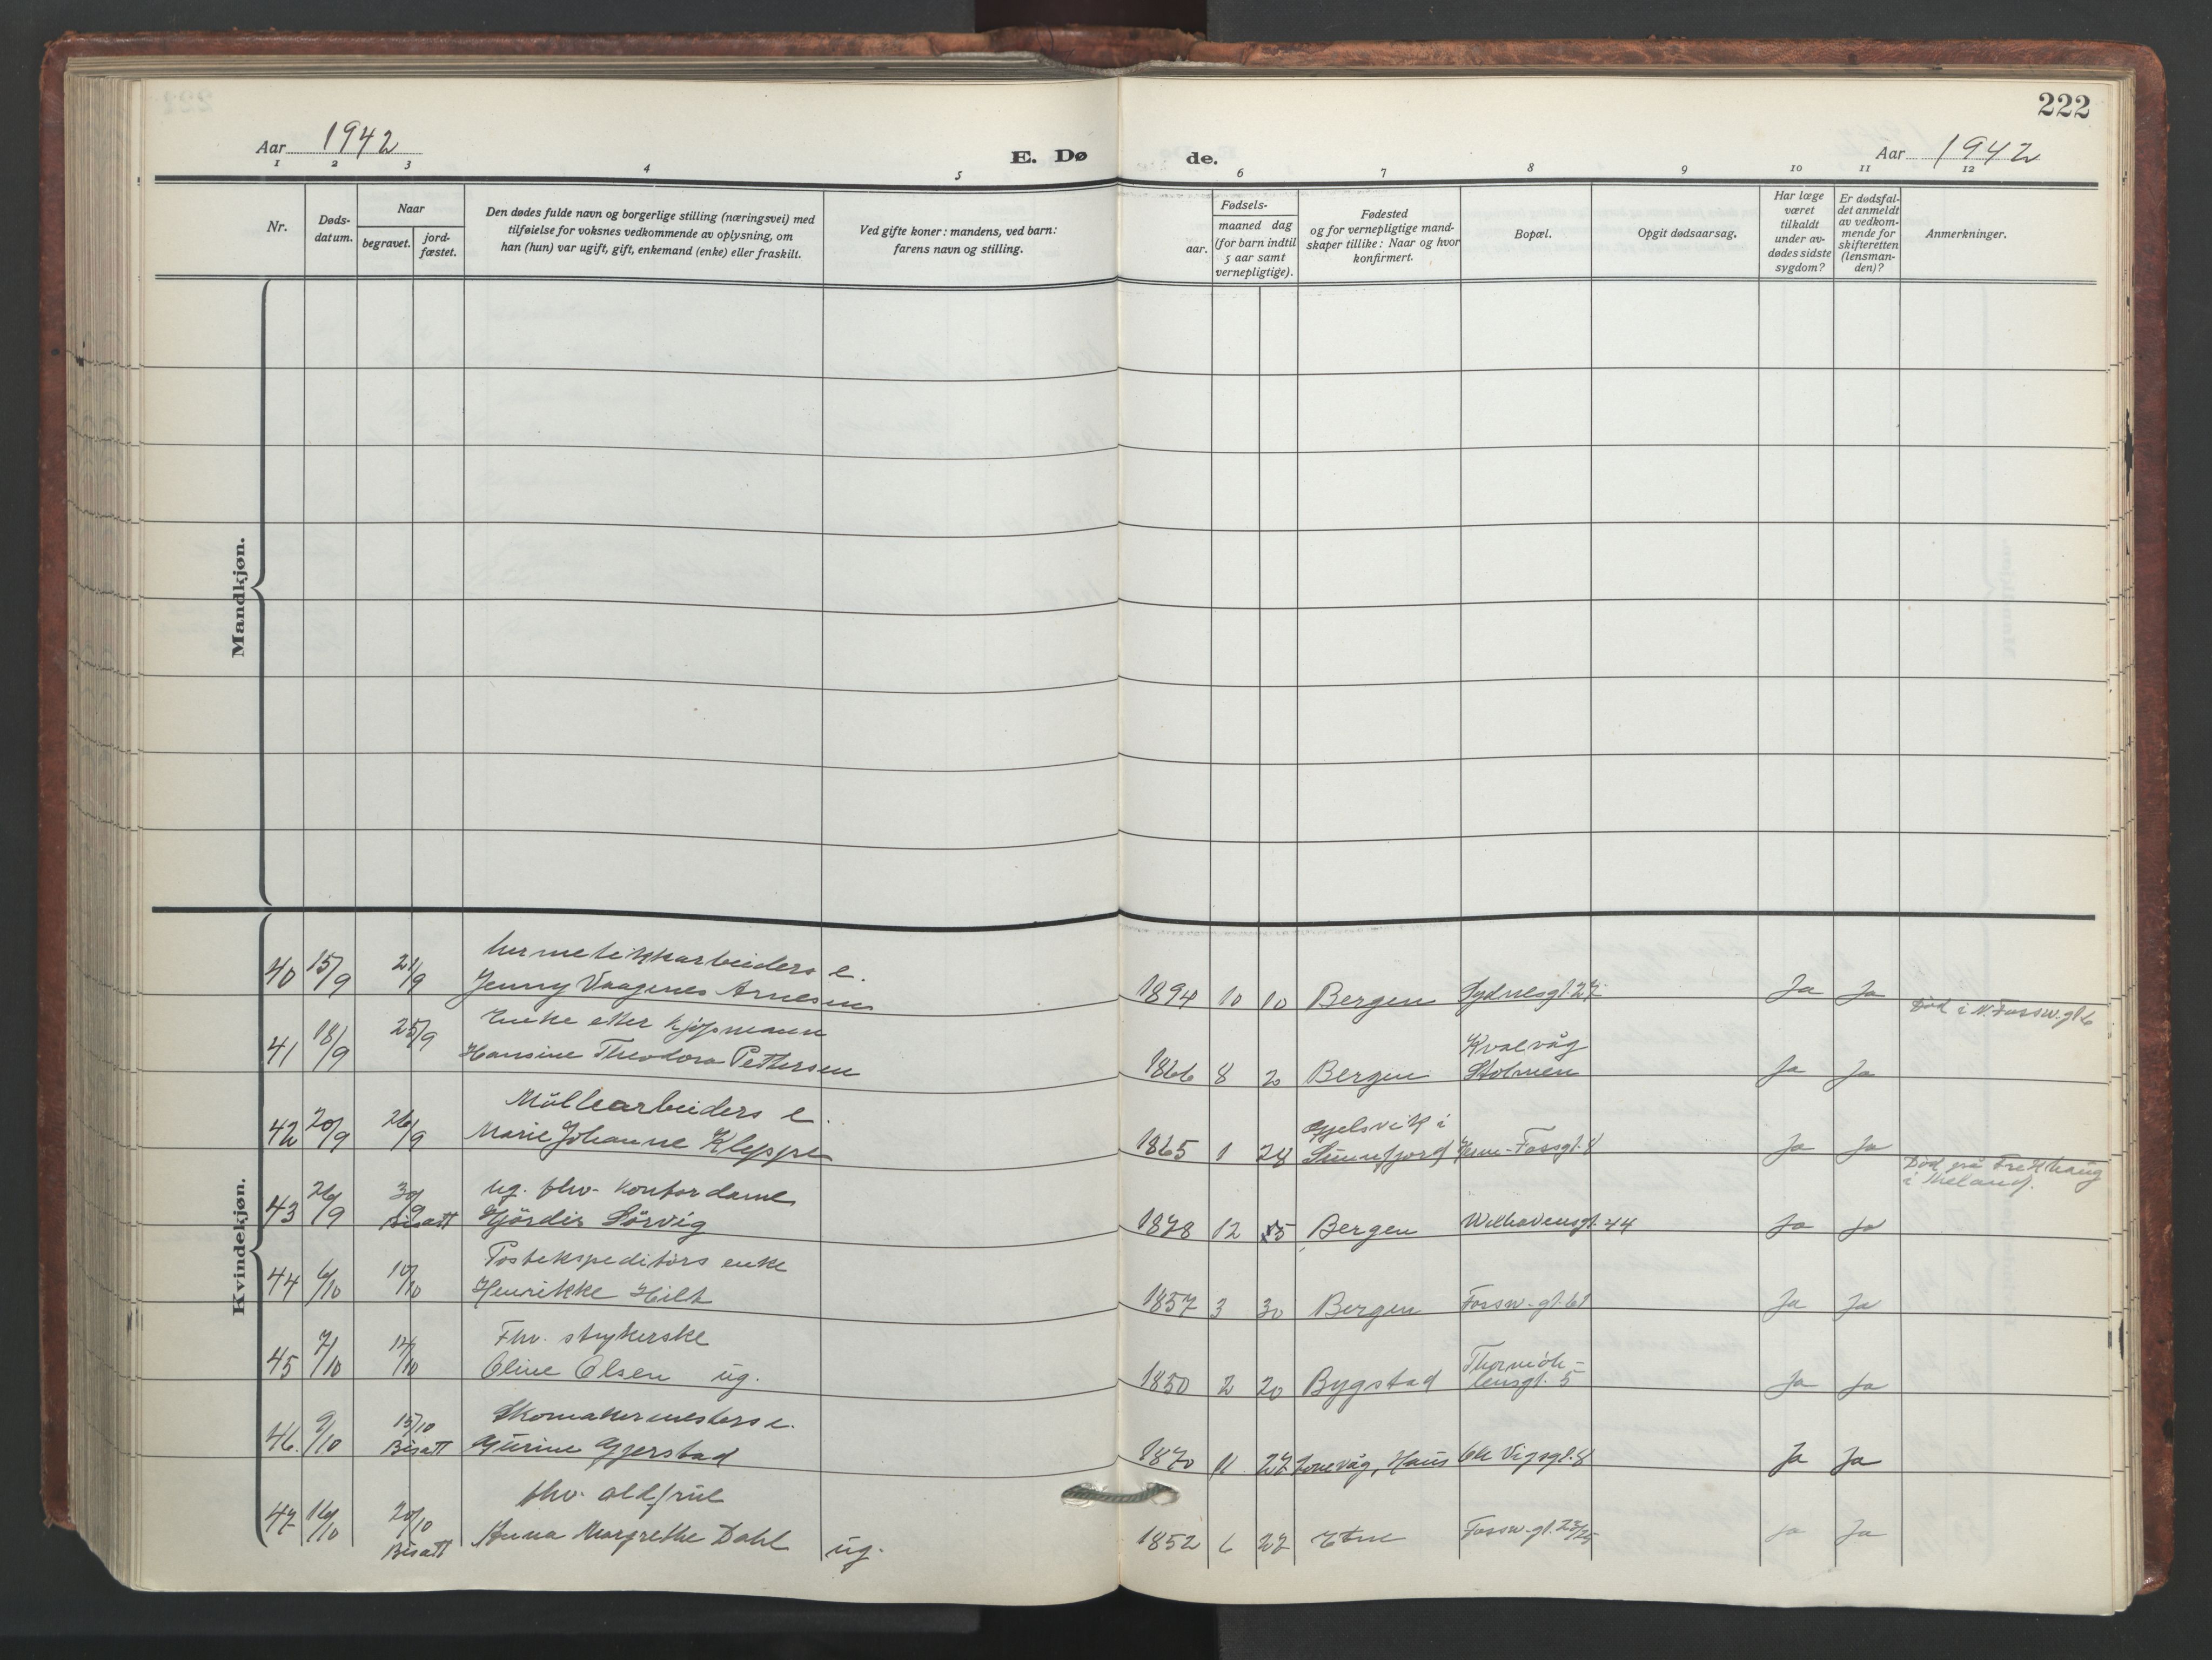 222
Aar 1942
E. Døde.
Aar 1942
1 2 3 4 5 6 7 8 9 10 11 12
Nr.
Døds-
datum.
Naar
begravet.
jord-
fæstet.
Den dødes fulde navn og borgerlige stilling (næringsvei) med
tilføielse for voksnes vedkommende av oplysning, om
han (hun) var ugift, gift, enkemand (enke) eller fraskilt.
Ved gifte koner: mandens, ved barn:
farens navn og stilling.
Fødsels-
aar.
maaned dag
(for barn indtil
5 aar samt
vernepligtige).
Fødested
og for vernepligtige mand-
skaper tillike: Naar og hvor
konfirmert.
Bopæl.
Opgit dødsaarsag.
Har læge
været
tilkaldt
under av-
dødes sidste
sygdom?
Er dødsfal-
det anmeldt
av vedkom-
mende for
skifteretten
(lensman-
den)?
Anmerkninger.
Mandkjøn.
Kvindekjøn.
hermetikkarbeiders e.
40 15/9 21/9 Jenny Vaagenes Arnesen 1894 10 10 Bergen Sydnesgt. 27 Ja Ja
Død i N. Fossw. gt 6
Enke etter kjøpmann
Kvalvåg
41 18/9 25/9 Hansine Theodora Pettersen 1866 8 20 Bergen Stolmen Ja Ja
Møllearbeiders e.
Gjelsvik i
42 20/9 26/9 Marie Johanne Kleppe 1865 1 28 Sunnfjord Fossgt. 8 Ja Ja
Død på Fredhaug
i Meland.
ug. fhv. kontordame
43 26/9 30/9 Bisatt Hjördis Sörvig 1878 12 5 Bergen Welhavensgt. 44 Ja Ja
Postekspeditörs enke
44 6/10 10/10 Henrikke Hilt 1857 3 30 Bergen Fossw. gt. 61 Ja Ja
Fhv. strykerske
Thormöh-
45 7/10 12/10 Oline Olsen ug. 1850 2 20 Bygstad lensgt. 5 Ja Ja
Skomakermesters e.
46. 9/10 15/10 Bisatt Gurine Gjerstad 1870 11 27 Lonevåg, Haus Ole Vigsgt. 8 Ja Ja
fhv. oldfrue
47 16/10 20/10 Bisatt Anna Margrethe Dahl ug. 1852 6 27 Etne Fossw. gt. 23/25 Ja Ja